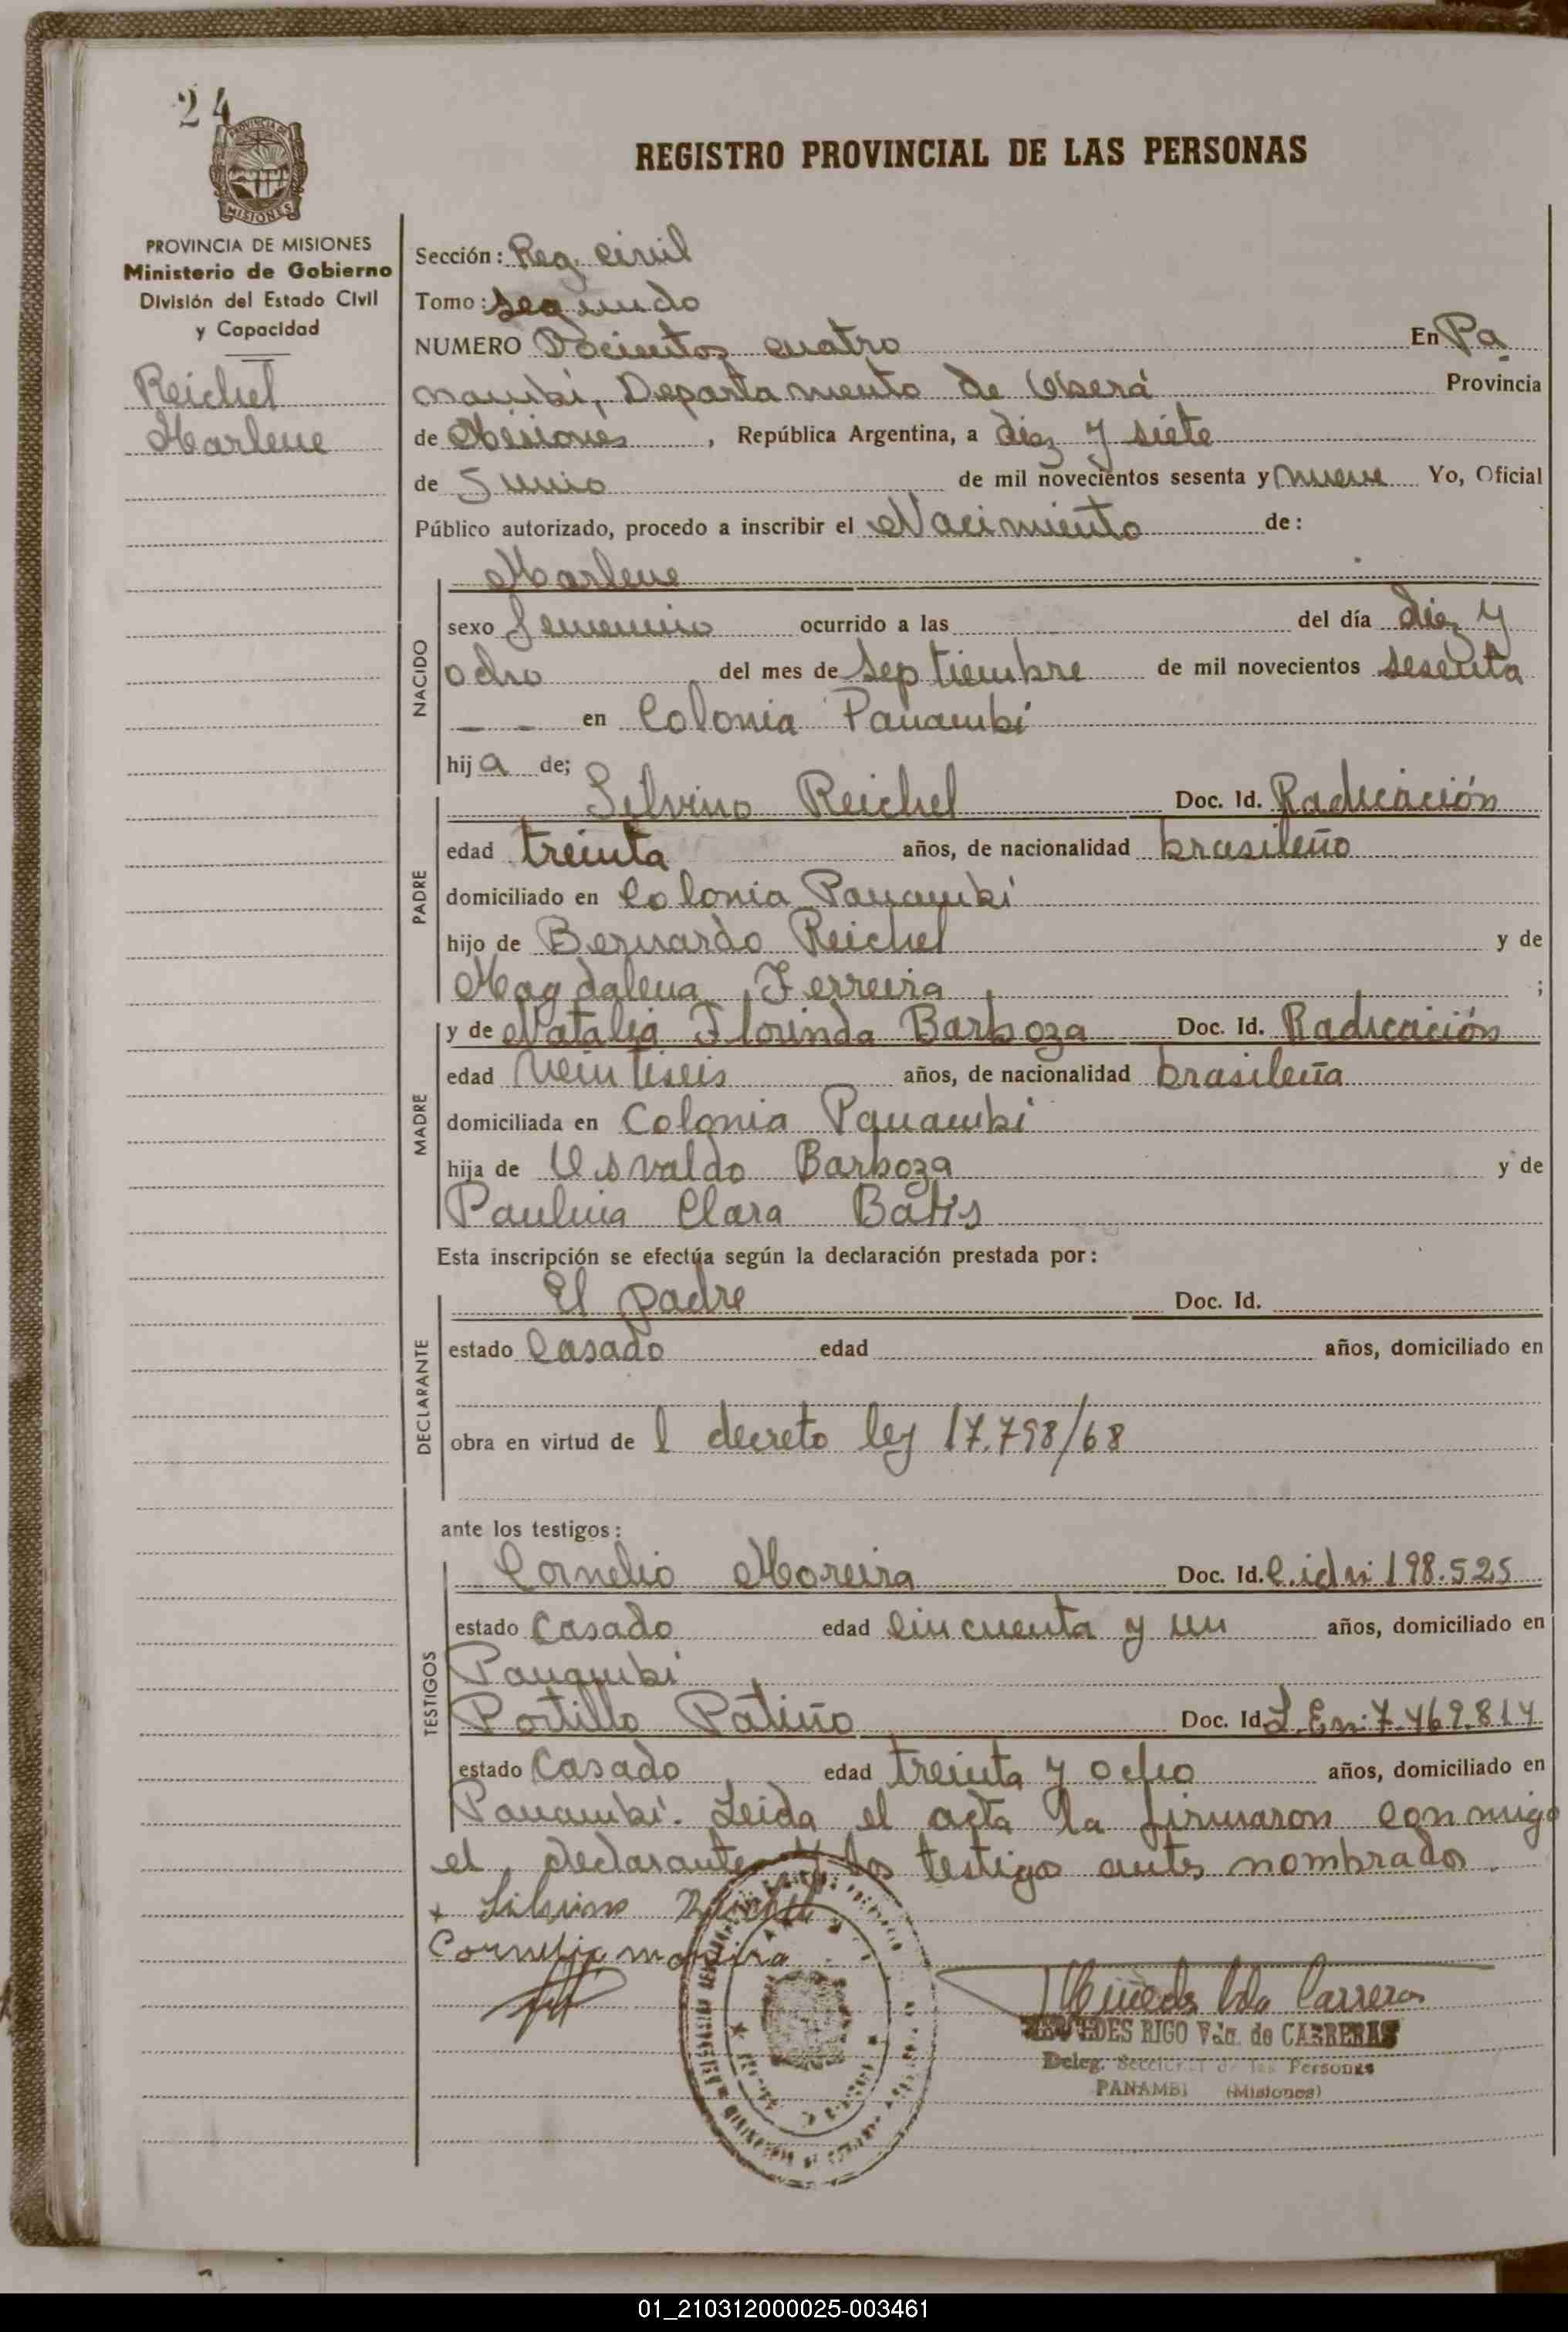 24
PROVINCIA DE
MISIONES
PROVINCIA DE MISIONES
Ministerio de Gobierno
División del Estado Civil
y Capacidad
Reichel
Marlene
REGISTRO PROVINCIAL DE LAS PERSONAS
Sección: Reg. Civil
Tomo: Segundo
NUMERO Docientos cuatro En Pa
nambí, Departamento de Oberá Provincia
de Misiones, República Argentina, a diez y siete
de Junio de mil novecientos sesenta y nueve Yo, Oficial
Público autorizado, procedo a inscribir el Nacimiento de:
Marlene
NACIDO
sexo femenino ocurrido a las del día diez y
ocho del mes de Septiembre de mil novecientos sesenta
— — en Colonia Panambí
hija de;
PADRE
Silvino Reichel Doc. Id. Radicación
edad treinta años, de nacionalidad brasileño
domiciliado en Colonia Panambí
hijo de Bernardo Reichel y de
Magdalena Ferreira ;
MADRE
y de Natalia Florinda Barboza Doc. Id. Radicación
edad veintiseis años, de nacionalidad brasileña
domiciliada en Colonia Panambí
hija de Osvaldo Barboza y de
Paulina Clara
Esta inscripción se efectúa según la declaración prestada por:
DECLARANTE
El padre Doc. Id.
estado Casado edad años, domiciliado en
obra en virtud de l decreto ley 17.798/68
ante los testigos:
TESTIGOS
Cornelio Moreira Doc. Id. C.idn: 198.525
estado Casado edad cincuenta y un años, domiciliado en
Panambí
Portillo Patiño Doc. Id L.En: 7.469.814
estado Casado edad treinta y ocho años, domiciliado en
Panambí. Leida el acta la firmaron conmigo
el declarante y los testigos antes nombrados.
x Silvino Reichel
Cornelio moreira
Carreras
MERCEDES RIGO Vda. de CARRERAS
Deleg. Seccional de las Personas
PANAMBI (Misiones)
01_210312000025-003461